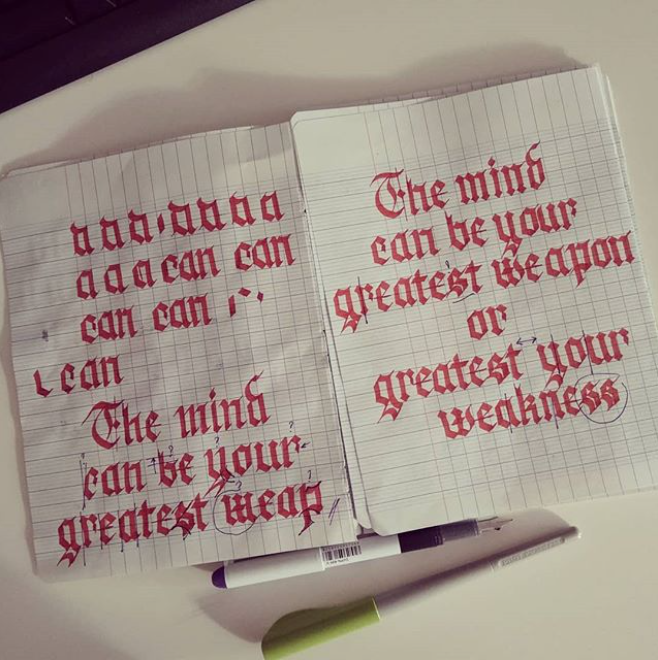 a a a a a a a
a a a can can
can can
can
The mind
can be your
greatest weap
The mind
can be your
greatest weapon
or
greatest your
weakness